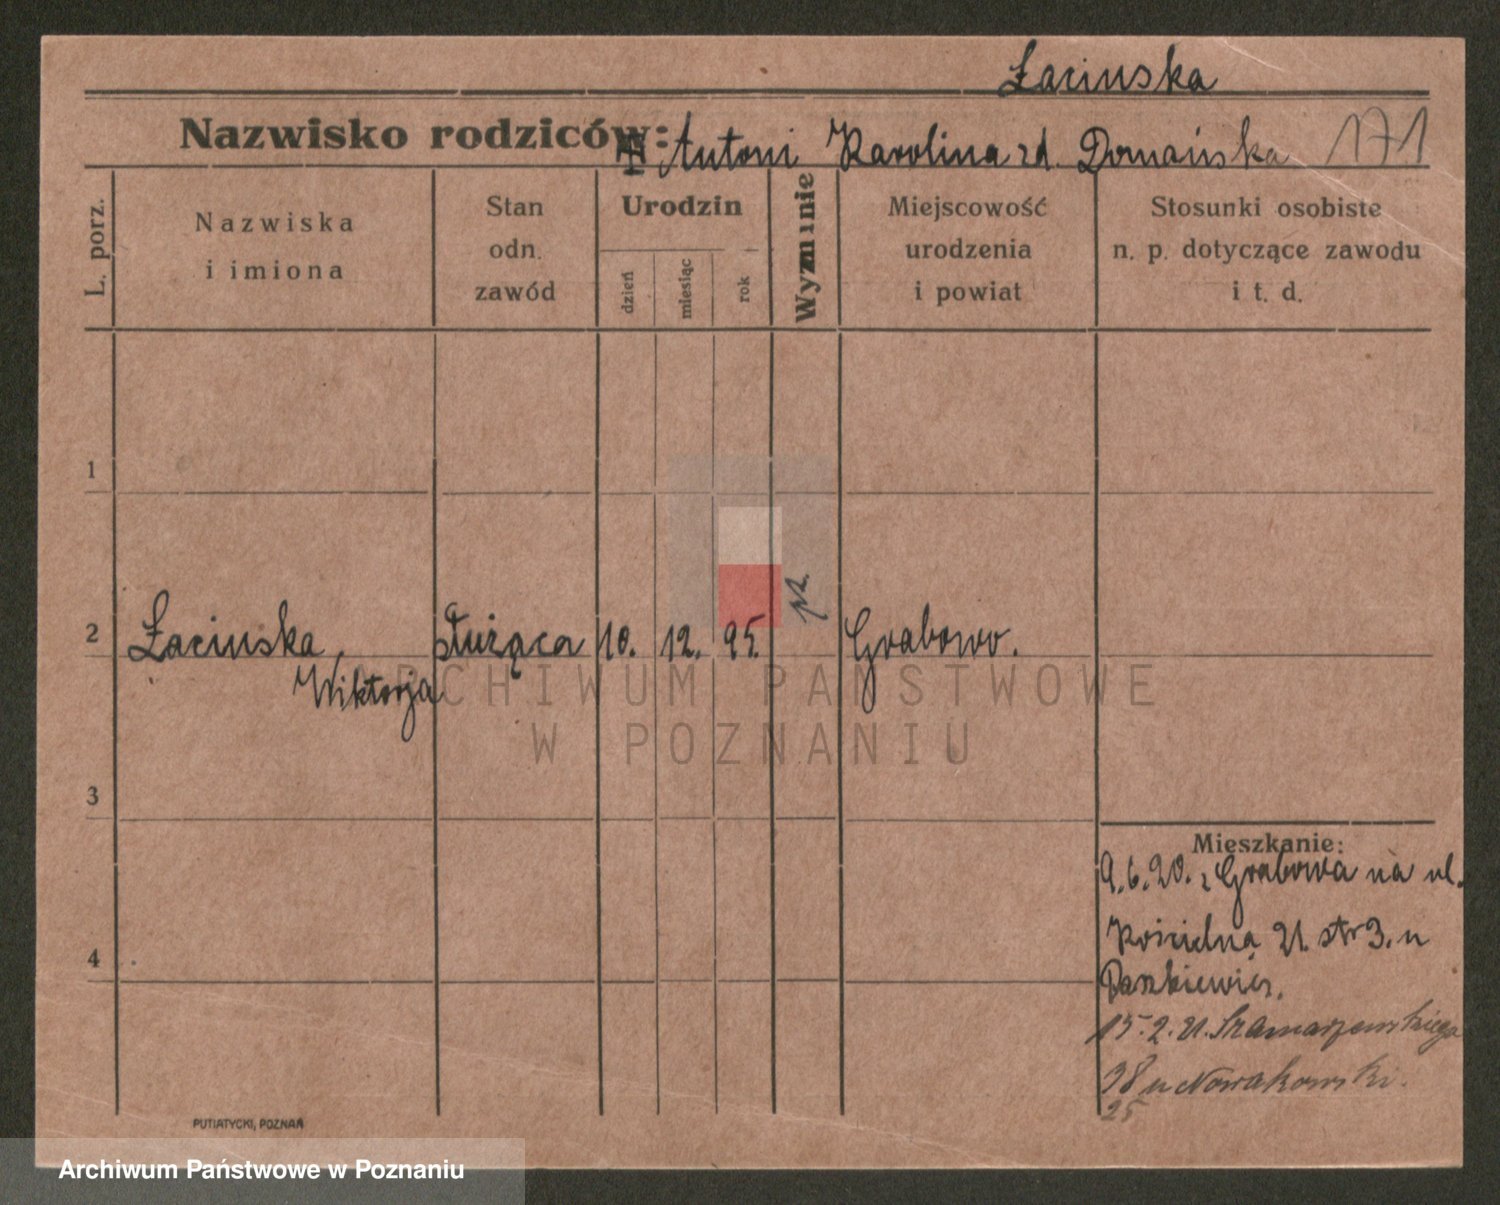 Łacinska
Nazwisko rodziców: Antoni Karolina zd. Domańska 171
L. porz.
Nazwiska
i imiona
Stan
odn.
zawód
Urodzin
dzień
miesiąc
rok
Wyznanie
Miejscowość
urodzenia
i powiat
Stosunki osobiste
n. p. dotyczące zawodu
i t. d.
1
2 Łacinska służąca 10. 12. 95. Grabowo.
Wiktorja
ARCHIWUM PAŃSTWOWE
W POZNANIU
3
4
Mieszkanie:
9.6.20. z Grabowa na ul.
Kościelną 21. str 3. u
Daszkiewicz.
15.2.21. Szamarzewskiego
38 u Nowakowski.
25
PUTIATYCKI, POZNAŃ
Archiwum Państwowe w Poznaniu